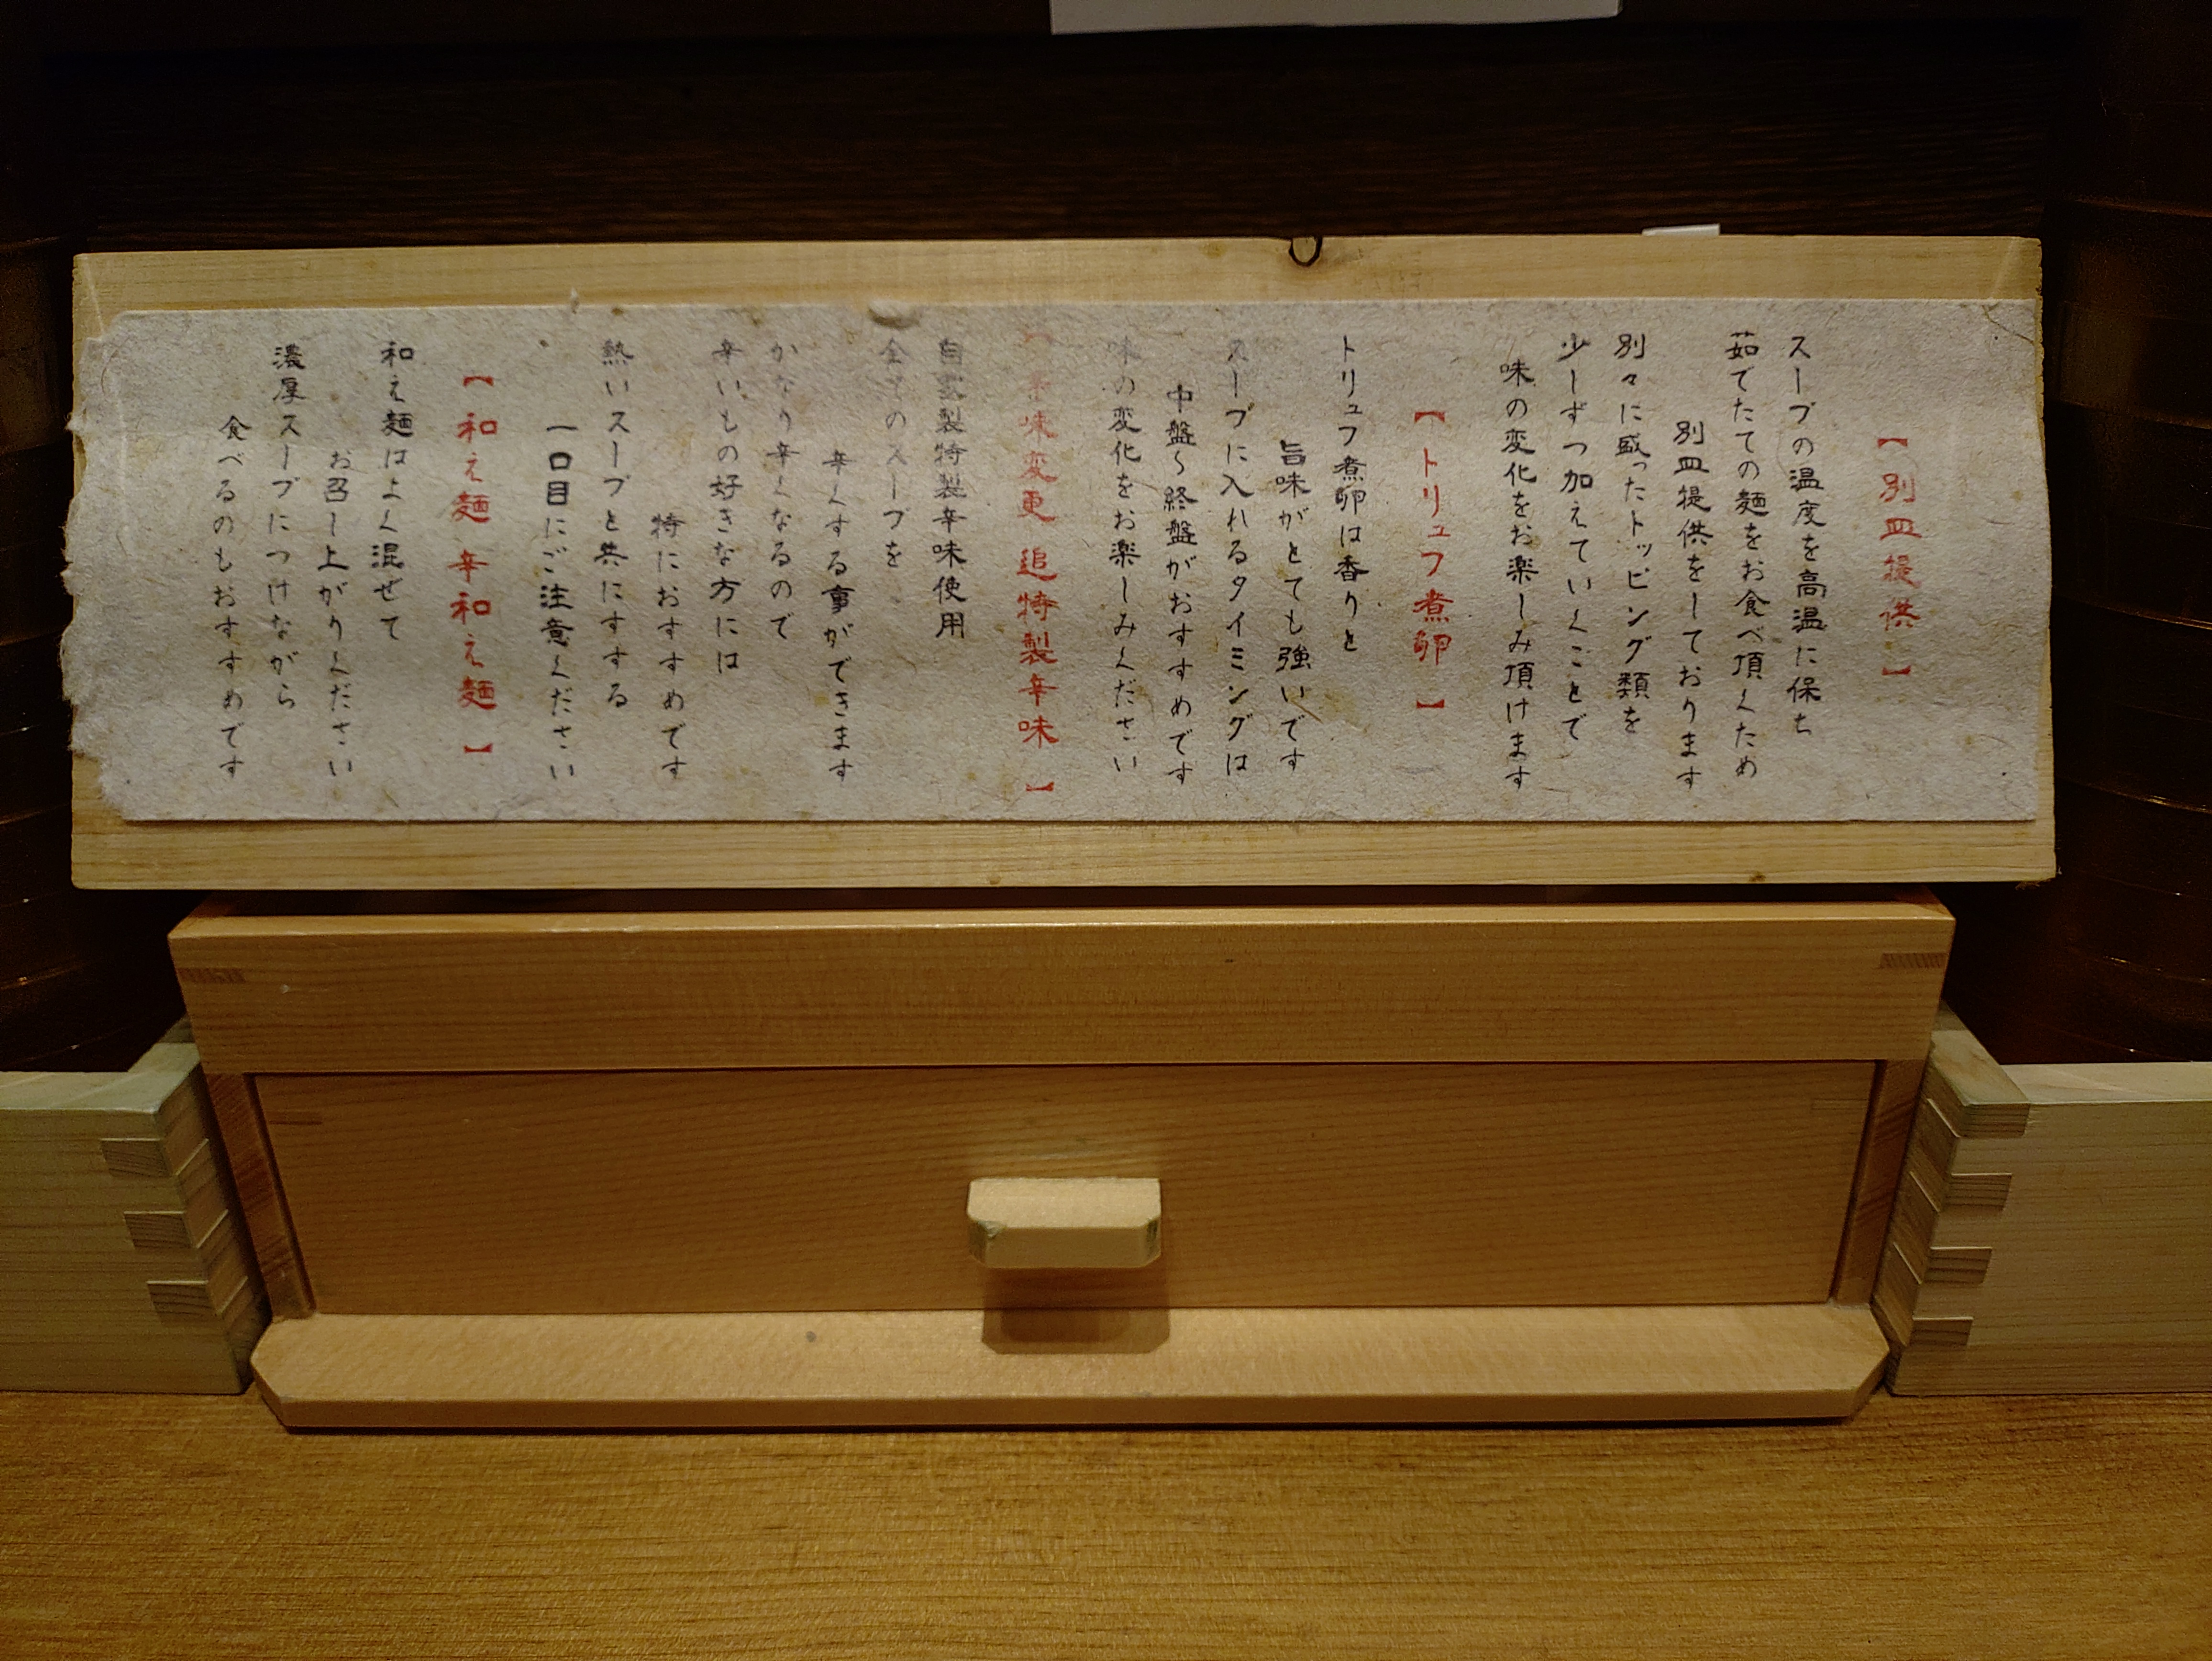 【別皿提供】
スープの温度を高温に保ち
茹でたての麺をお食べ頂くため
別皿提供をしております
別々に盛ったトッピング類を
少しずつ加えていくことで
味の変化をお楽しみ頂けます
【トリュフ煮卵】
トリュフ煮卵は香りと
旨味がとても強いです
スープに入れるタイミングは
中盤〜終盤がおすすめです
味の変化をお楽しみください
味変更 追特製辛味】
自家製特製辛味使用
全てのスープを
辛くする事ができます
かなり辛くなるので
辛いもの好きな方には
特におすすめです
熱いスープと共にすする
一口目にご注意ください
【和え麺 辛和え麺】
和え麺はよく混ぜて
お召し上がりください
濃厚スープにつけながら
食べるのもおすすめです